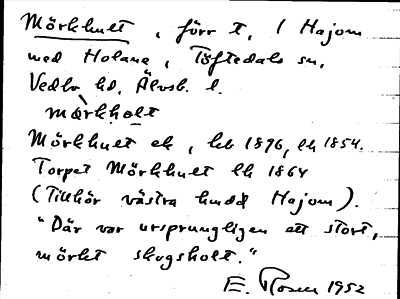 Mörkhult, förr t. / Hajom
med Holane, Töftedals sn,
Vedbo hd, Älvsb. l.
mörkholt
Mörkhult ek, hlb 1896, lh 1854.
Torpet Mörkhult lh 1864
(Tillhör västra hundd Hajom).
"Där var ursprungligen ett stort,
mörkt skogsholt."
E. Rosen 1952